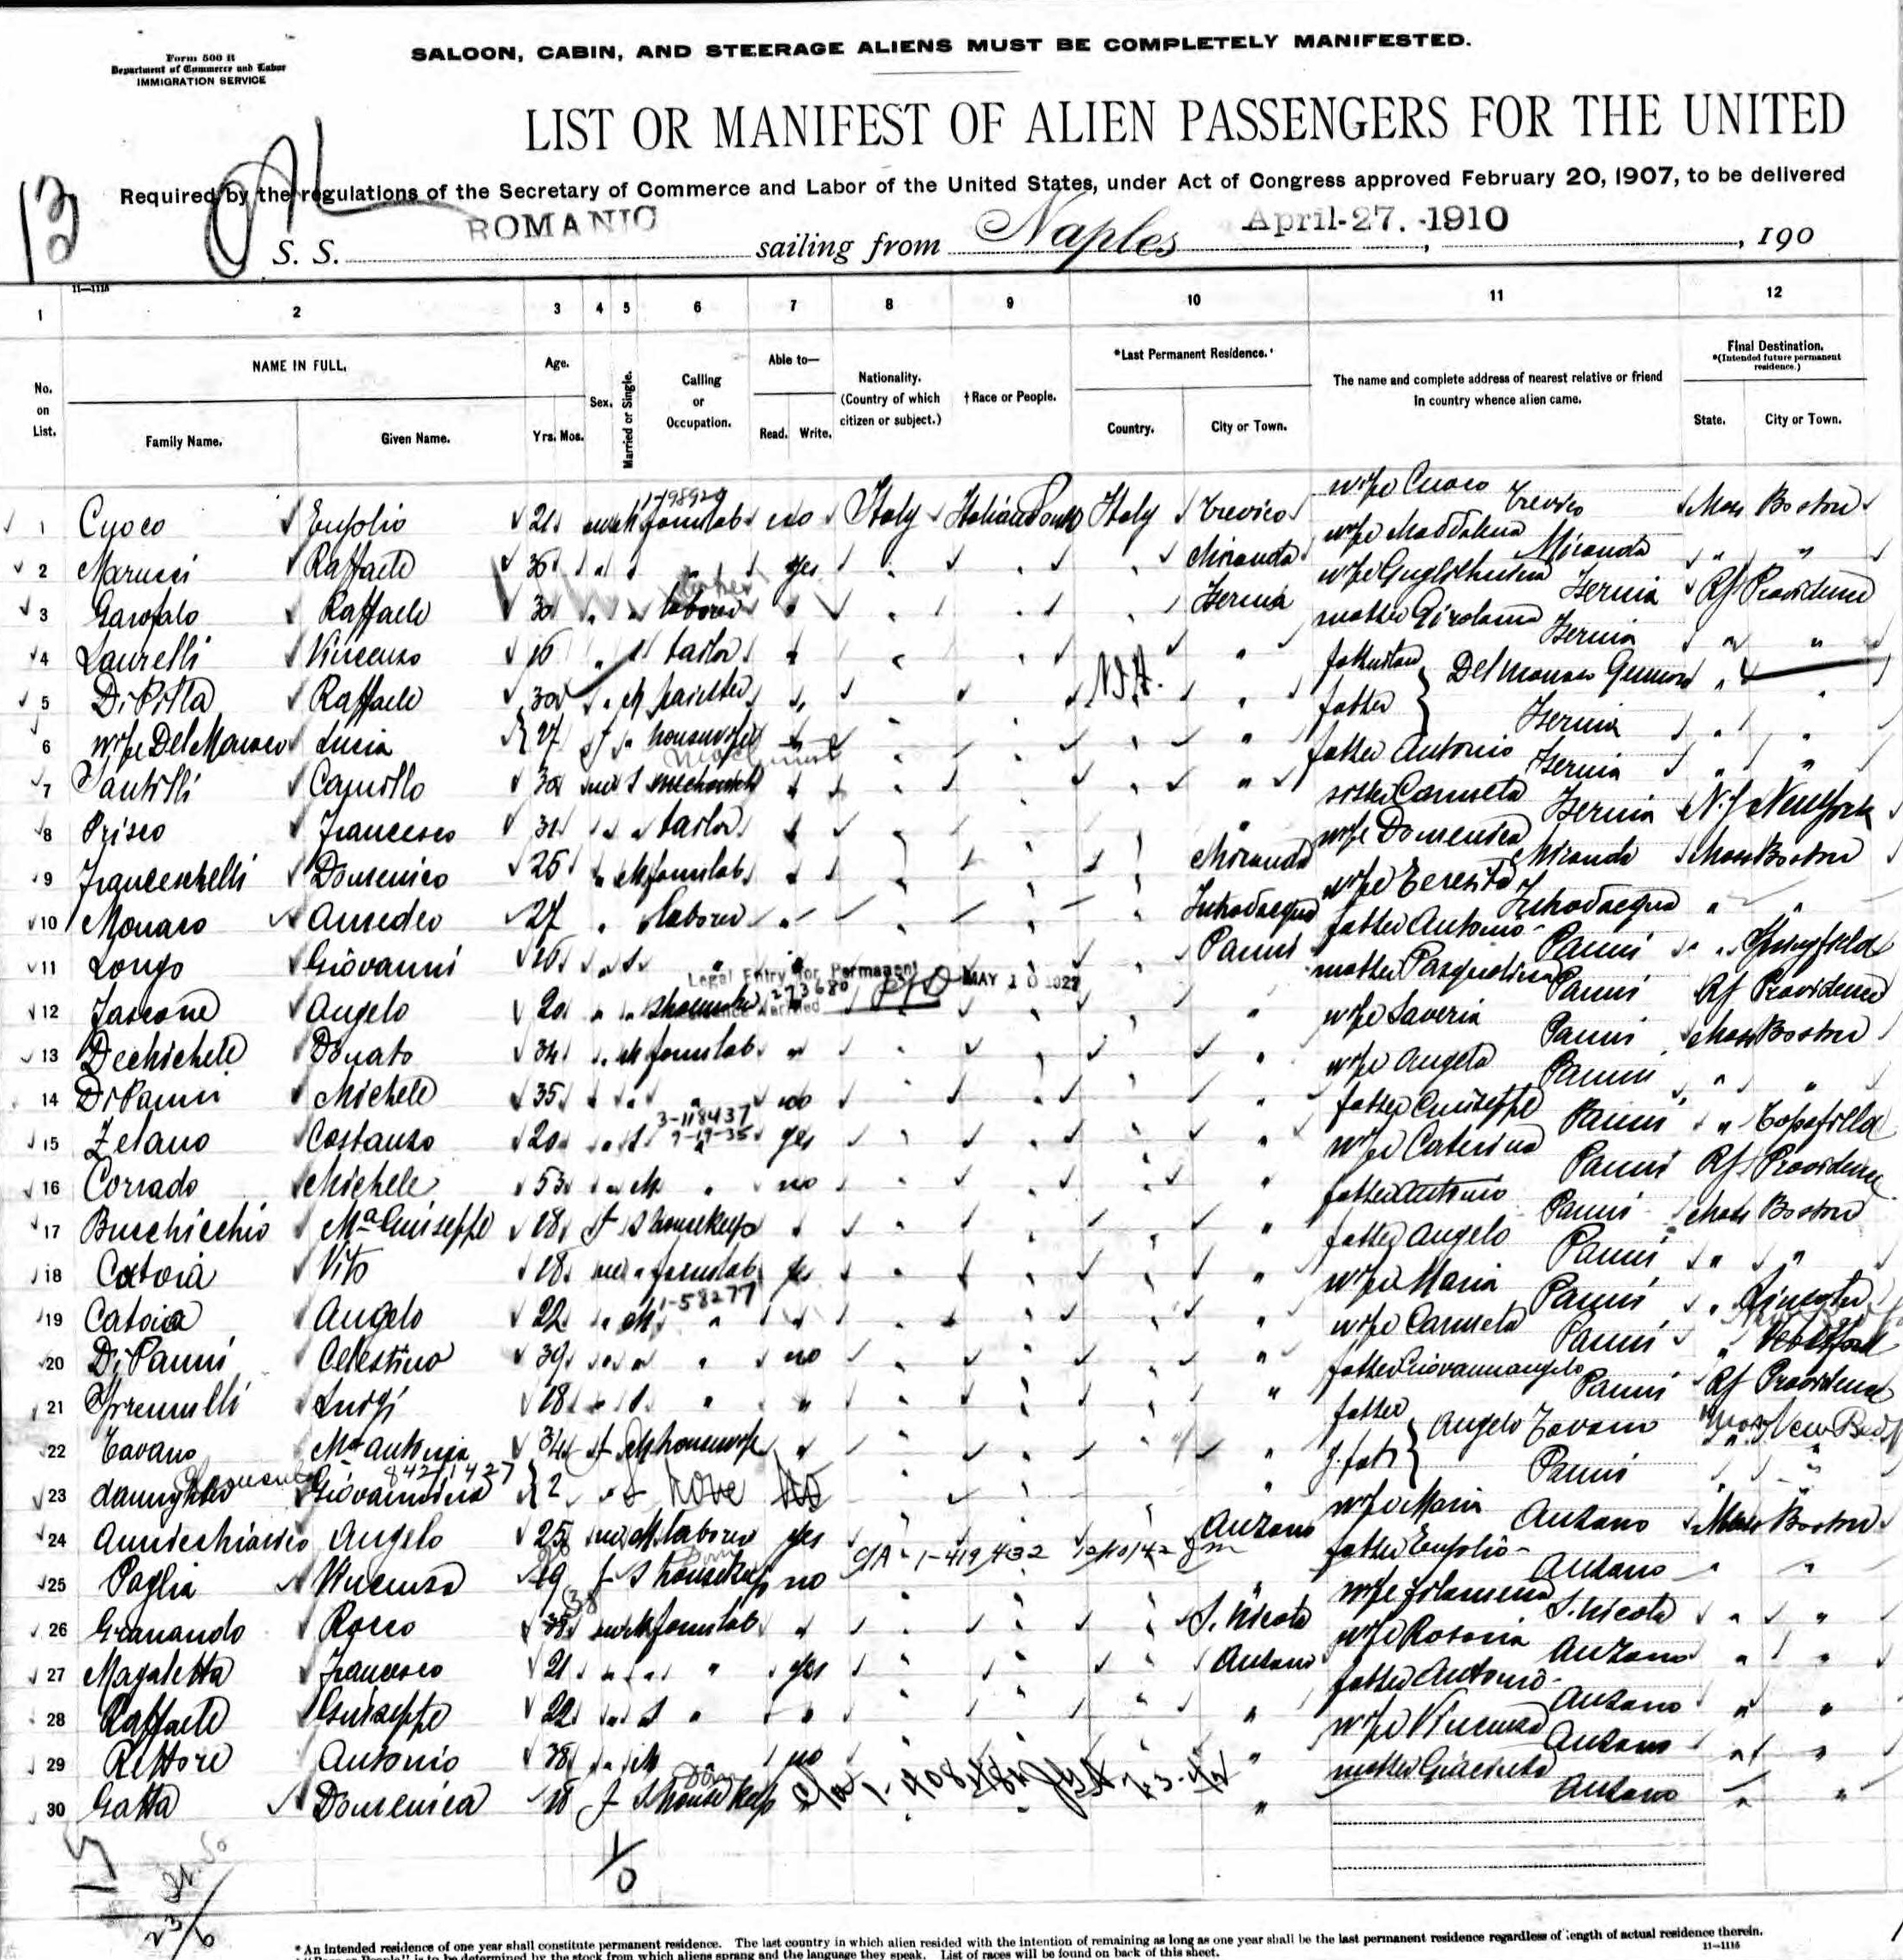 Form 500 B
Department of Commerce and Labor
IMMIGRATION SERVICE
SALOON, CABIN, AND STEERAGE ALIENS MUST BE COMPLETELY MANIFESTED.
LIST OR MANIFEST OF ALIEN PASSENGERS FOR THE UNITED
13
Required by the regulations of the Secretary of Commerce and Labor of the United States, under Act of Congress approved February 20, 1907, to be delivered
S. S. ROMANIC sailing from Naples April-27.-1910, 190
11—1115
1 2 3 4 5 6 7 8 9 10 11 12
No. on List.
NAME IN FULL.
Family Name. Given Name.
Age.
Yrs. Mos.
Sex.
Married or Single.
Calling or Occupation.
Able to—
Read. Write.
Nationality. (Country of which citizen or subject.)
† Race or People.
*Last Permanent Residence.
Country. City or Town.
The name and complete address of nearest relative or friend in country whence alien came.
Final Destination. *(Intended future permanent residence.)
State. City or Town.
1 Cuoco Eupolio 21 farmlab no Italy Italian South Italy Trevico wife Cuoco Trevico Mass Boston
2 Marucci Raffaele 36 " yes Miranda wife Maddalena Miranda " "
3 Garofalo Raffaele 30 laborer " Isernia wife Isernia RI Providence
4 Laurelli Vincenzo 16 tailor " " mother Girolama Isernia " "
5 Di Pilla Raffaele 30 M " N.A. "
6 wife Del Monaco Lucia 27 f " housewife " " father Isernia " "
7 Santilli Camillo 30 S " " father Antonio Isernia " "
8 Prisco Francesco 31 tailor " " sister Carmela Isernia N.Y New York
9 Franceschelli Domenico 25 M farmlab " Miranda wife Domenica Miranda Mass Boston
10 Monaco Amedeo 27 " laborer " wife Teresita " "
11 Longo Giovanni 26 S " Panni father Antonio Panni " Springfield
Legal Entry for Permanent 273680 MAY 10 1927
12 Iascone Angelo 20 " " " mother Pasqualina Panni RI Providence
13 Dechichele Donato 34 M farmlab " " wife Saveria Panni Mass Boston
14 Di Panni Michele 35 " " no " wife Angela Panni " "
3-118437
15 Zelano Costanzo 20 S 7-19-35 yes " father Giuseppe Panni "
16 Corrado Michele 53 M " no " wife Caterina Panni RI Providence
17 Bucchicchio Ma Guiseppe 18 f S housekeep " " father Antonio Panni Mass Boston
18 Catoia Vito 18 " farmlab yes " father Angelo Panni " "
1-58277
19 Catoia Angelo 22 M " " " wife Maria Panni "
20 Di Panni Celestino 39 " " no " wife Carmela Panni "
21 Luigi 18 S " " " father Giovannangelo Panni RI Providence
22 Tavano Ma Antonia 34 f M housewife " " father Angelo Tavano New Bed
842/1427
23 daughter Giovannina 2 " S none no " g. fath Panni " "
24 Angelo 25 M laborer yes Anzano wife Maria Anzano Mass Boston
C/A 1-419432 12/10/42
25 Paglia Vincenza 19 f S housekeep no " father Eupolio Anzano " "
26 Granando Rocco 38 M farmlab " S. Nicola wife Filomena S. Nicola " "
27 Magaletta Francesco 21 " " " yes Anzano wife Rosaria Anzano " "
28 Raffaele Guiseppe 22 S " " " father Antonio Anzano " "
29 Rettore Antonio 38 M no " wife Vincenza Anzano " "
30 Gatta Domenica 18 f S housekeep " " mother Giacinta Anzano " "
* An intended residence of one year shall constitute permanent residence. The last country in which alien resided with the intention of remaining as long as one year shall be the last permanent residence regardless of length of actual residence therein.
† "Race or People" is to be determined by the stock from which aliens sprang and the language they speak. List of races will be found on back of this sheet.
11—1115